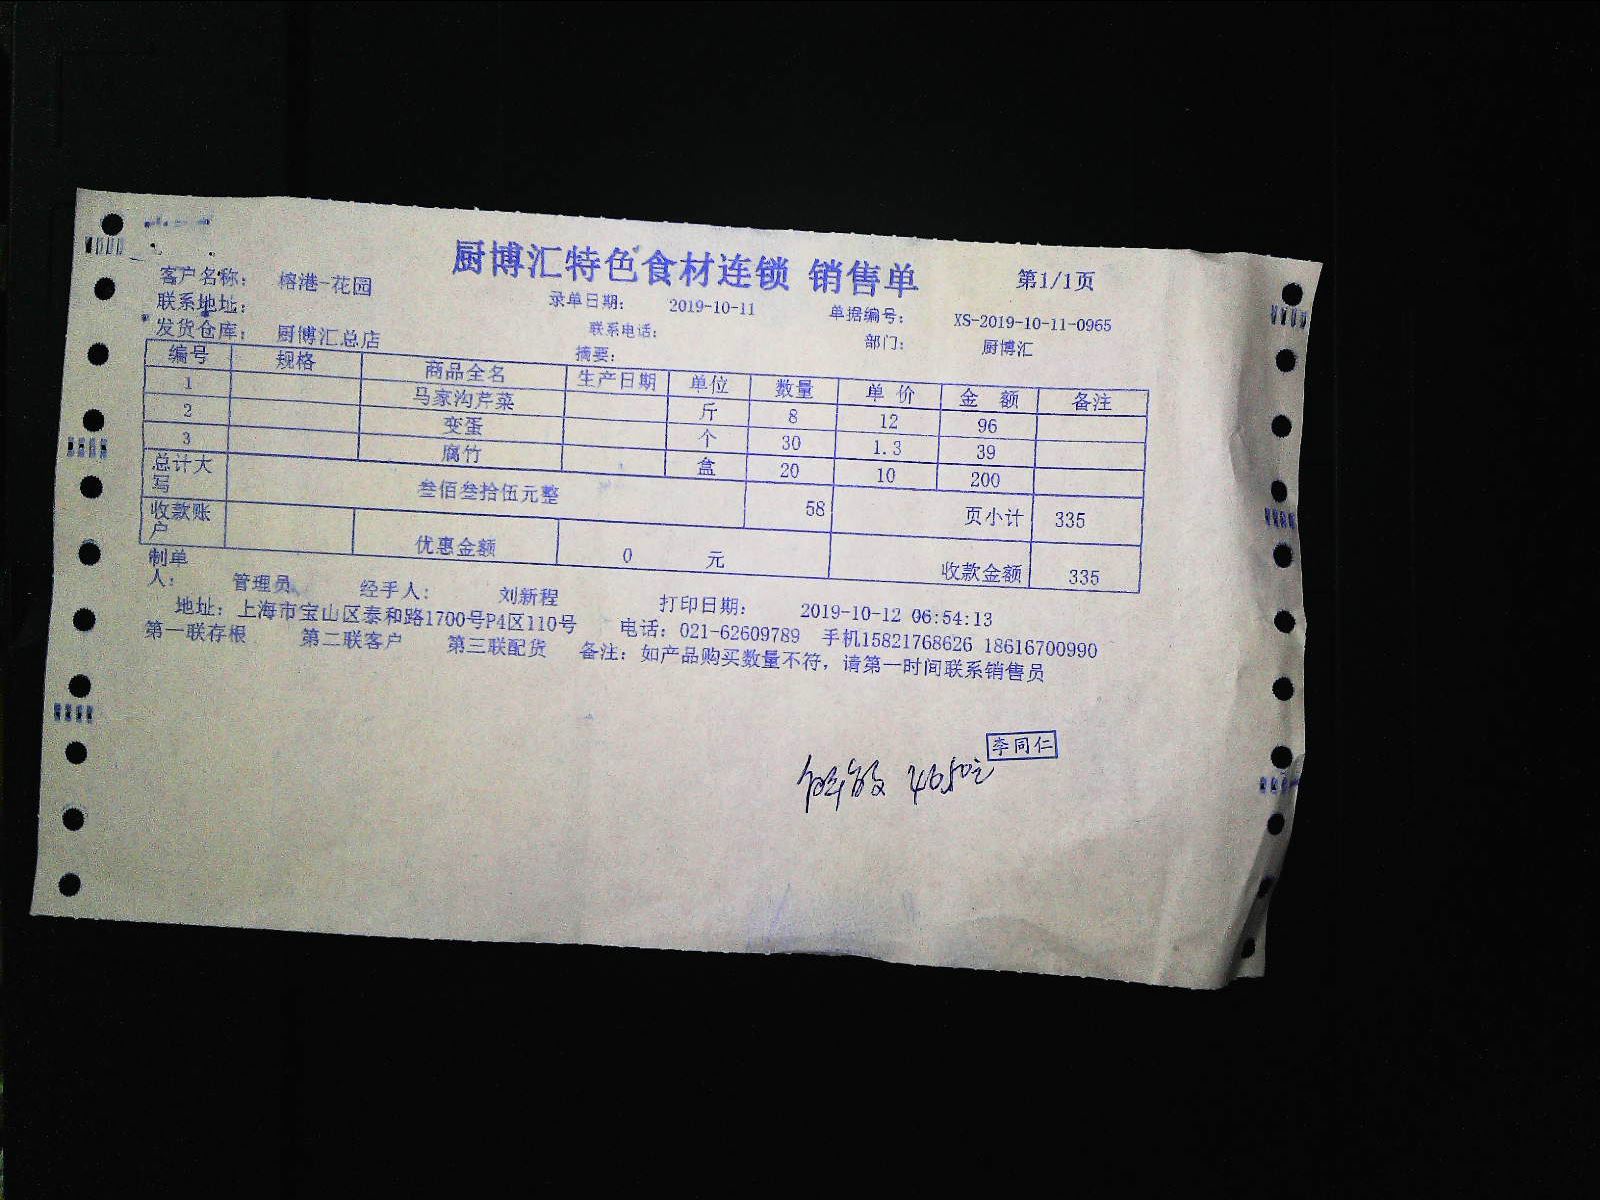 厨博汇特色食材连锁 销售单 第1/1页
客户名称: 榕港-花园 录单日期: 2019-10-11 单据编号: XS-2019-10-11-0965
联系地址: 联系电话: 部门: 厨博汇
发货仓库: 厨博汇总店 摘要:
编号 规格 商品全名 生产日期 单位 数量 单 价 金 额 备注
1 马家沟芹菜 斤 8 12 96
2 变蛋 个 30 1.3 39
3 腐竹 盒 20 10 200
总计大写 叁佰叁拾伍元整 58 页小计 335
收款账户 优惠金额 0 元 收款金额 335
制单人: 管理员 经手人: 刘新程 打印日期: 2019-10-12 06:54:13
地址: 上海市宝山区泰和路1700号P4区110号 电话: 021-62609789 手机15821768626 18616700990
第一联存根 第二联客户 第三联配货 备注: 如产品购买数量不符, 请第一时间联系销售员
李同仁